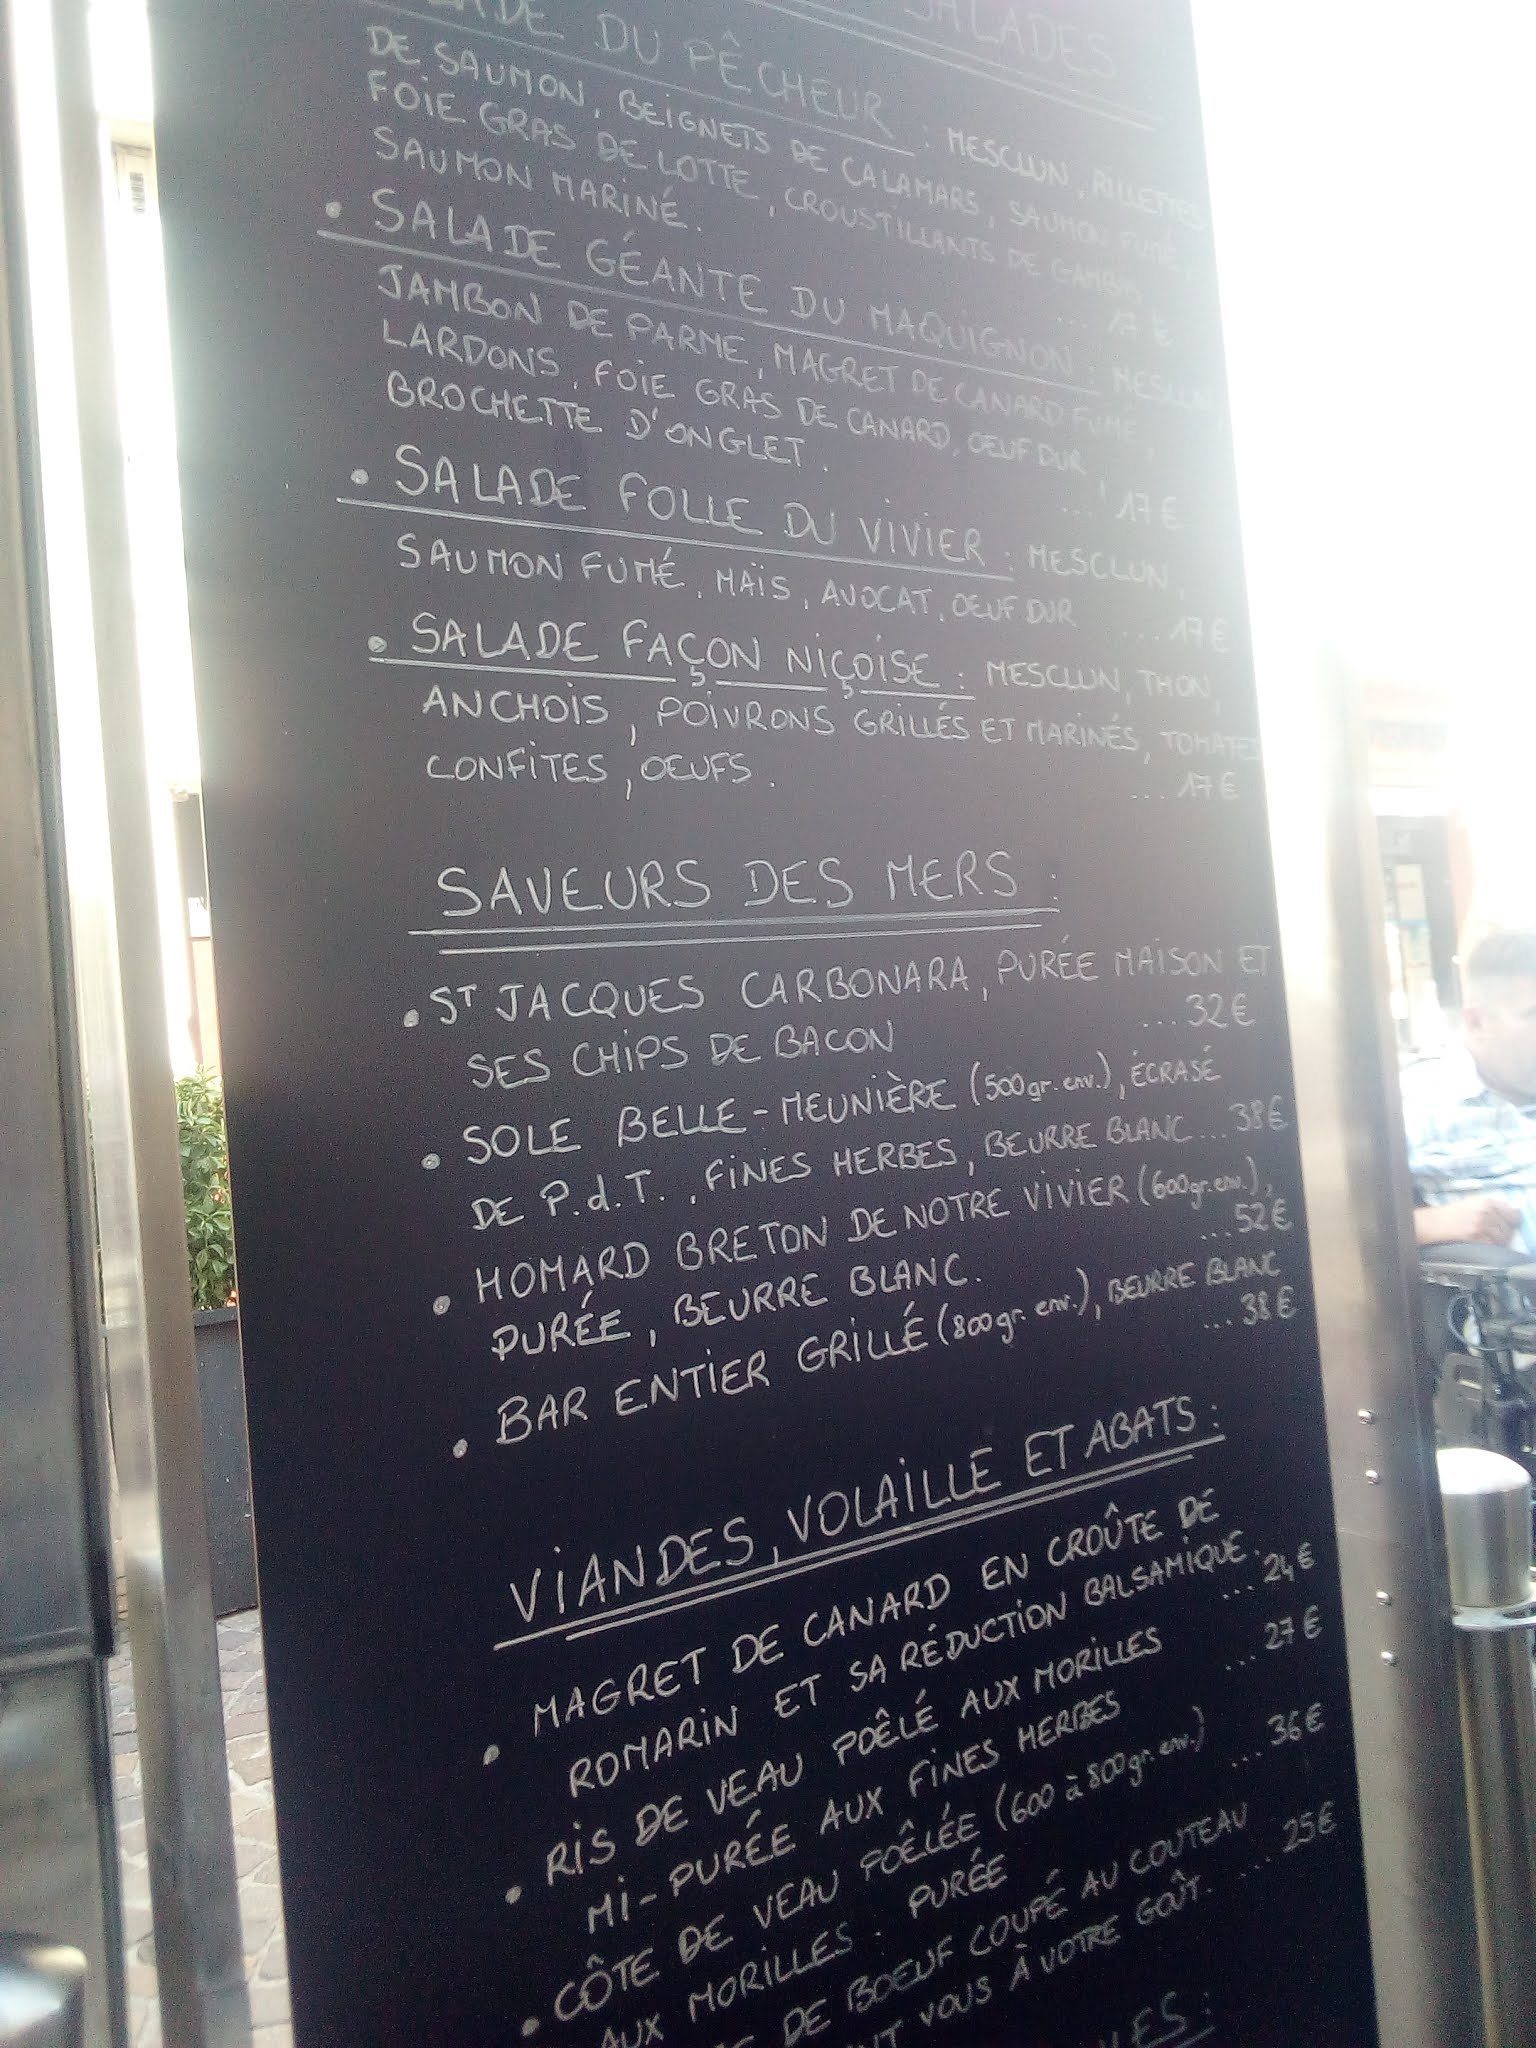 SALADES
DU PÊCHEUR : MESCLUN, RILLETTES
DE SAUMON, BEIGNETS DE CALAMARS, SAUMON FUMÉ,
FOIE GRAS DE LOTTE, CROUSTILLANTS DE GAMBAS
SAUMON MARINÉ. ... 17 €
• SALADE GÉANTE DU MAQUIGNON : MESCLUN,
JAMBON DE PARME, MAGRET DE CANARD FUMÉ,
LARDONS, FOIE GRAS DE CANARD, OEUF DUR,
BROCHETTE D'ONGLET. ... 17 €
• SALADE FOLLE DU VIVIER : MESCLUN,
SAUMON FUMÉ, MAÏS, AVOCAT, OEUF DUR ... 17 €
• SALADE FAÇON NIÇOISE : MESCLUN, THON,
ANCHOIS, POIVRONS GRILLÉS ET MARINÉS, TOMATES
CONFITES, OEUFS. ... 17 €
SAVEURS DES MERS :
• ST JACQUES CARBONARA, PURÉE MAISON ET
SES CHIPS DE BACON ... 32 €
• SOLE BELLE-MEUNIÈRE (500gr. env.), ÉCRASÉ
DE P.d.T., FINES HERBES, BEURRE BLANC... 38 €
• HOMARD BRETON DE NOTRE VIVIER (600gr. env.),
PURÉE, BEURRE BLANC. ... 52 €
• BAR ENTIER GRILLÉ (800gr. env.), BEURRE BLANC
... 38 €
VIANDES, VOLAILLE ET ABATS :
• MAGRET DE CANARD EN CROÛTE DE
ROMARIN ET SA RÉDUCTION BALSAMIQUE. ... 24 €
• RIS DE VEAU POÊLÉ AUX MORILLES
MI-PURÉE AUX FINES HERBES ... 27 €
• CÔTE DE VEAU POÊLÉE (600 à 800gr. env.)
AUX MORILLES. PURÉE ... 36 €
DE BOEUF COUPÉ AU COUTEAU
VOUS À VOTRE GOÛT. ... 25 €